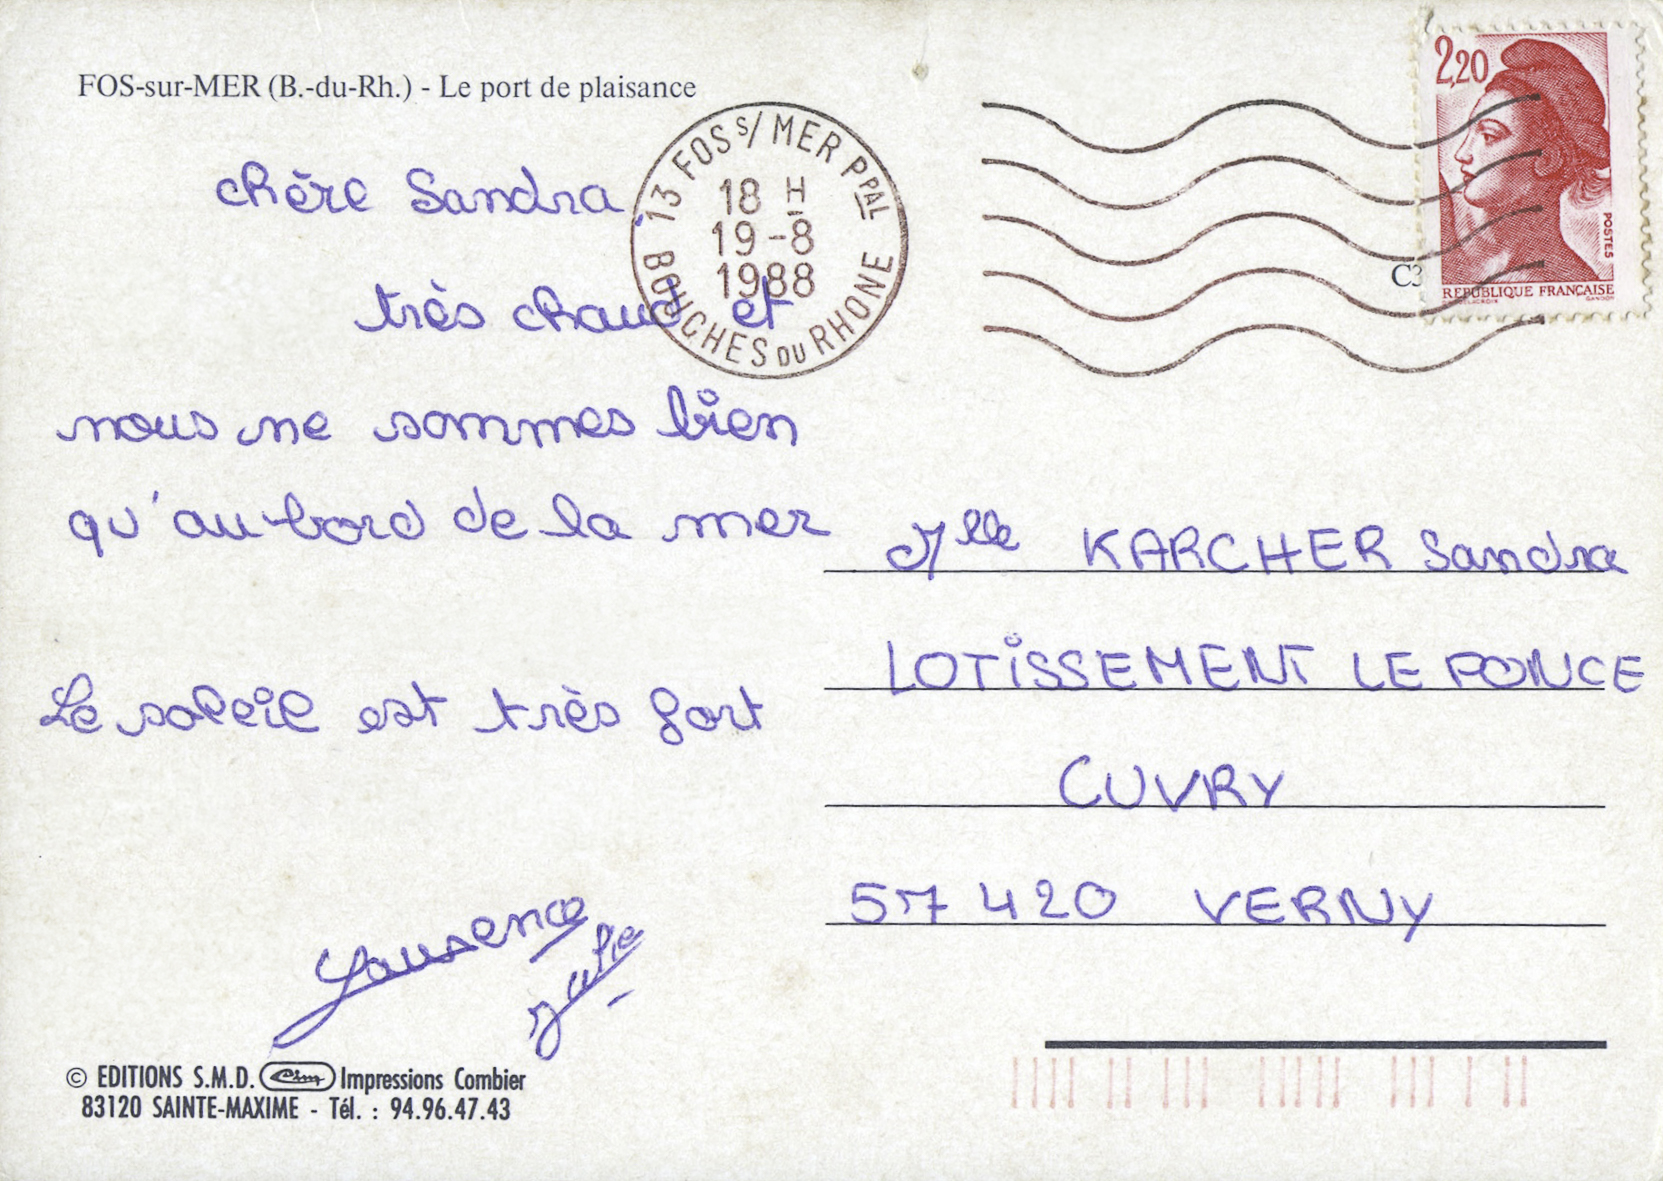 FOS-sur-MER (B.-du-Rh.) - Le port de plaisance
chère Sandra,
très chaud et
nous ne sommes bien
qu'au bord de la mer
Le soleil est très fort
13 FOS S/ MER PPAL
18 H
19-8
1988
BOUCHES DU RHONE
2,20
POSTES
REPUBLIQUE FRANÇAISE
C3
Mlle KARCHER Sandra
LOTiSSEMENT LE PONCE
CUVRY
57 420 VERNY
© EDITIONS S.M.D. Cim Impressions Combier
83120 SAINTE-MAXIME - Tél. : 94.96.47.43